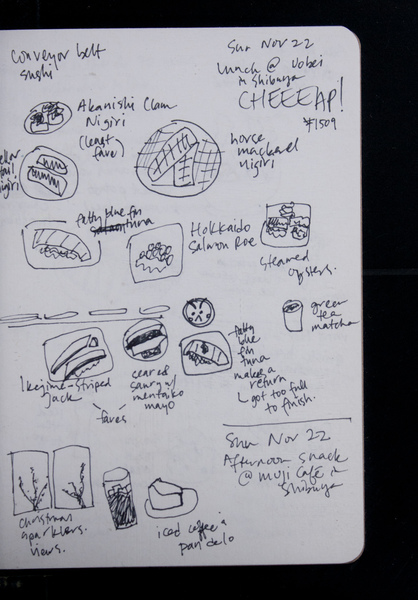 Conveyor belt
sushi
Sun Nov 22
Lunch @ Uobei
in Shibuya
CHEEEAP!
¥1509
Akanishi Clam
Nigiri
(least
fave)
tail
nigiri
horse
mackerel
nigiri
fatty blue fin
tuna
Hokkaido
Salmon Roe
steamed
oysters.
green
tea
matcha
Ikejime-striped
jack
seared
saury w/
mentaiko
mayo
faves
fatty
blue
fin
tuna
makes a
return
got too full
to finish.
Sun Nov 22
Afternoon snack
@ muji Café in
Shibuya
christmas
sparklers.
views.
iced coffee &
pan delo